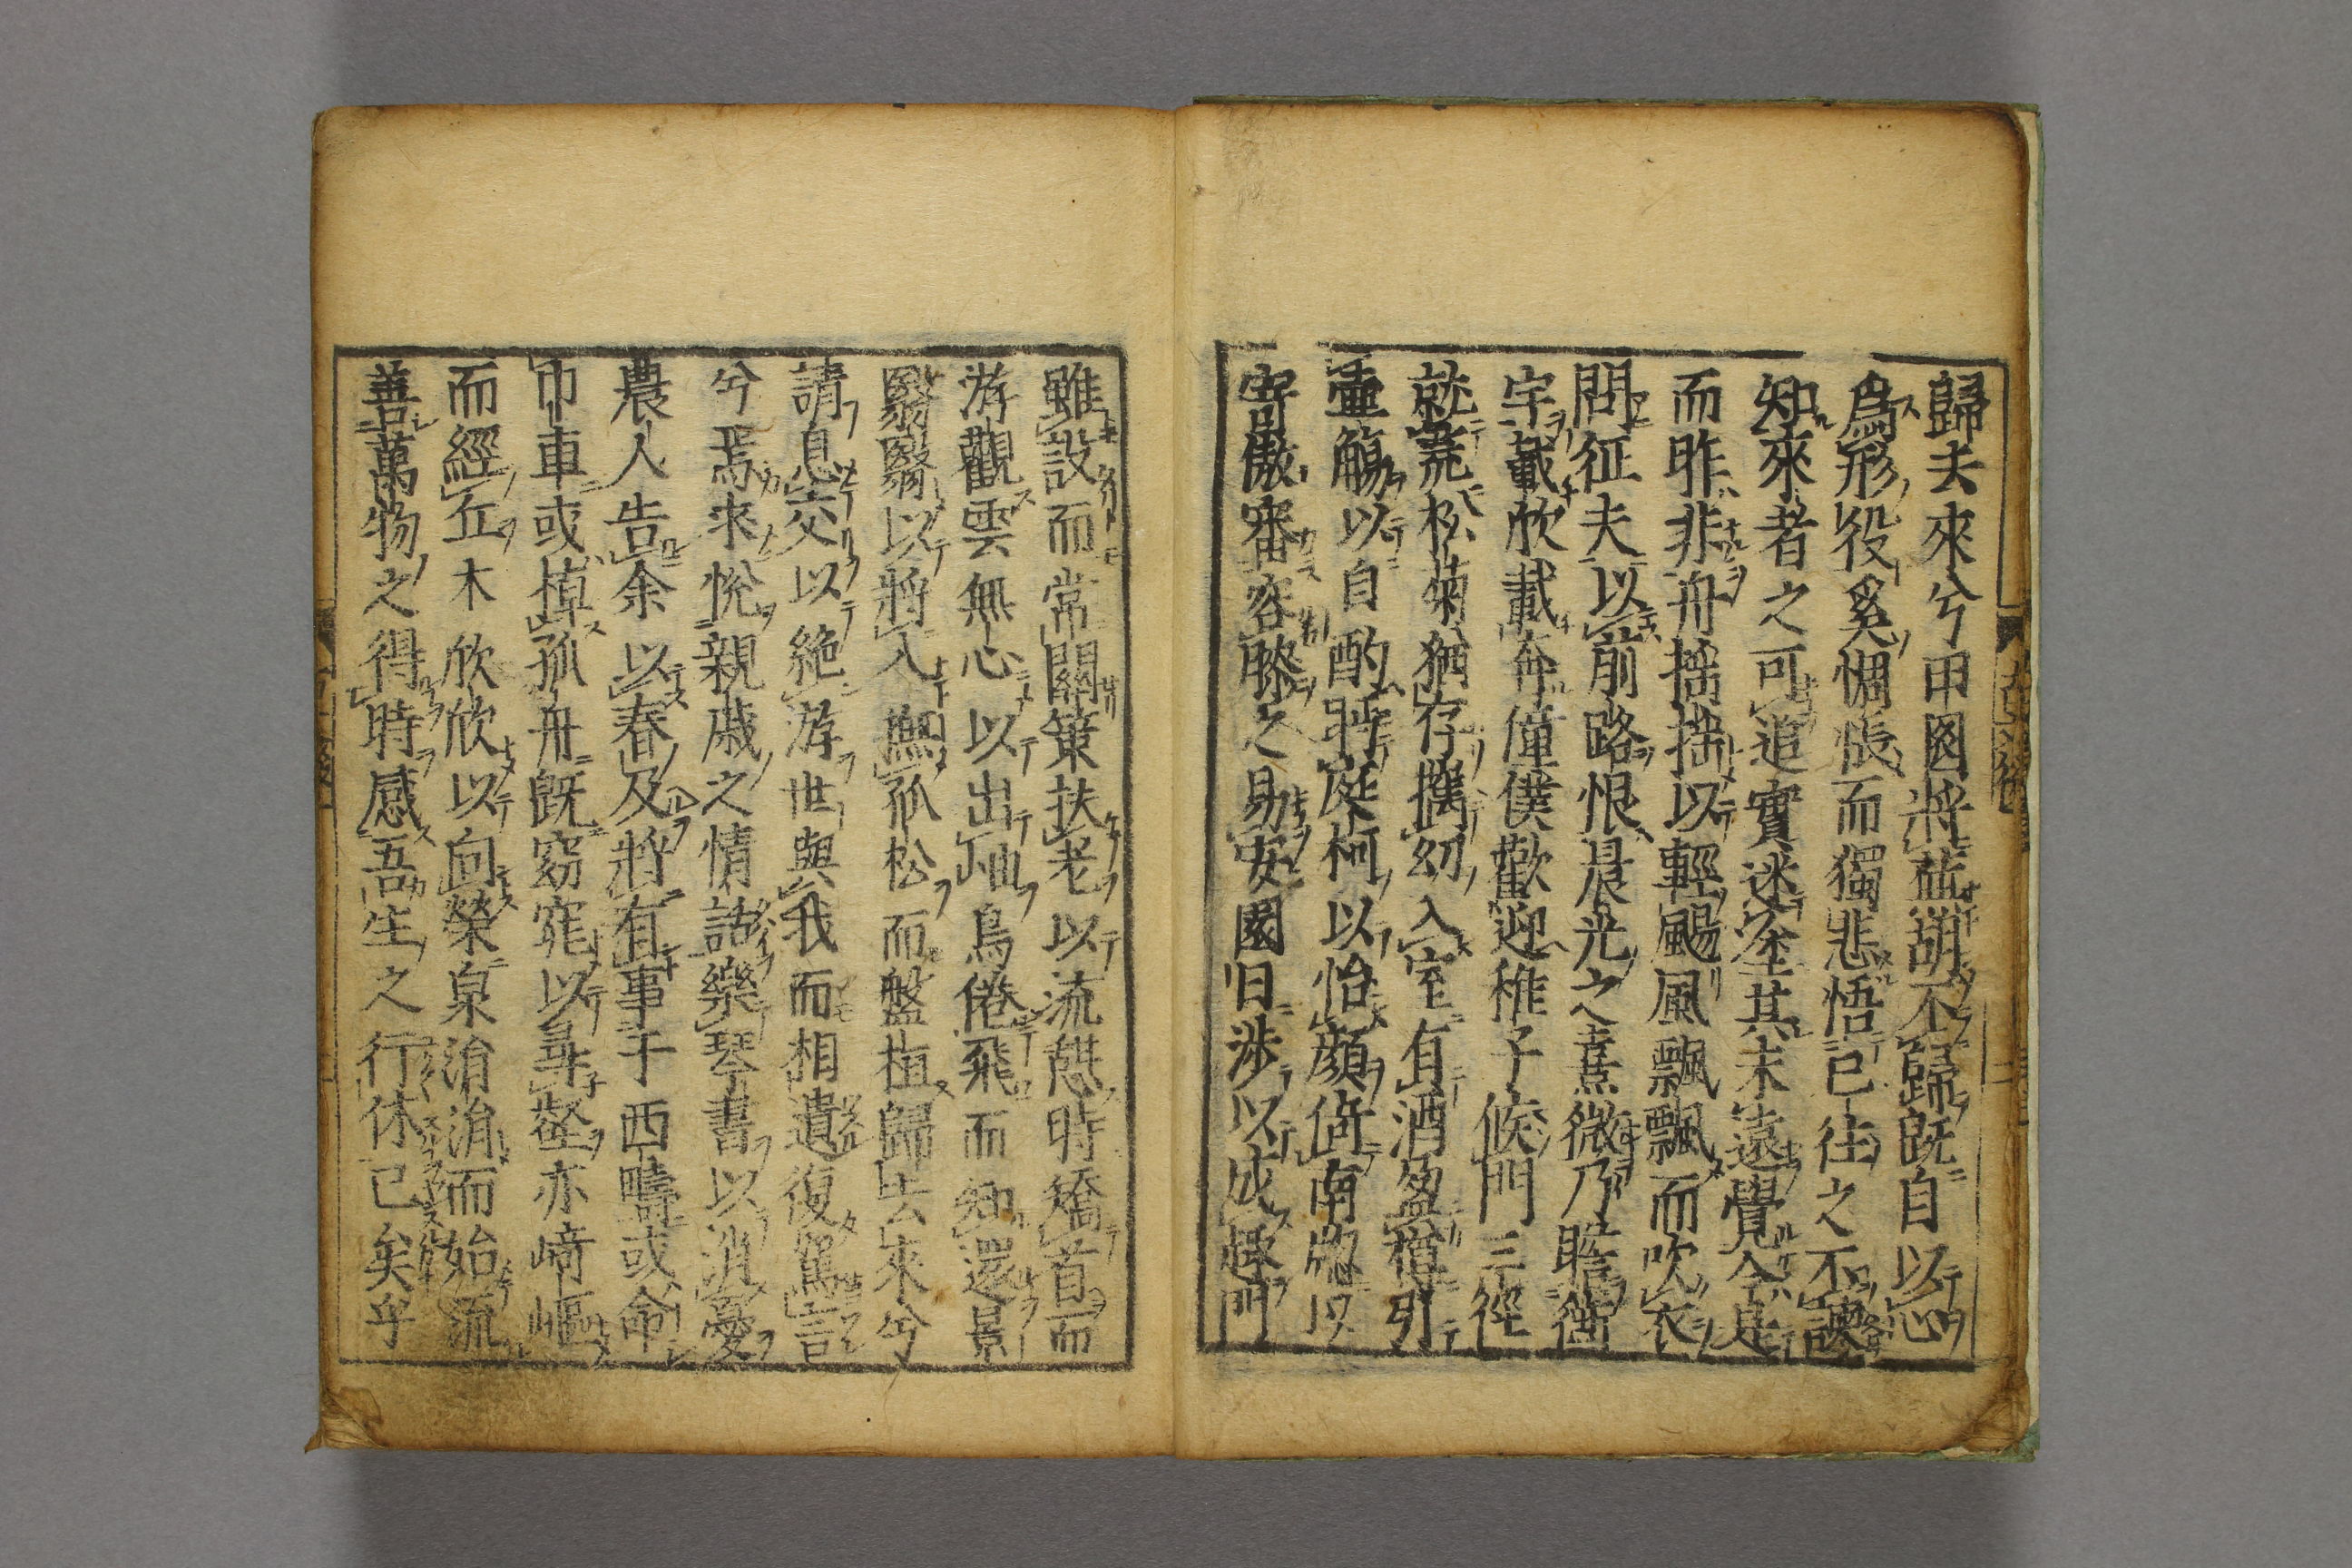 歸去來兮田園將蕪胡不歸既自以心
爲形役奚惆悵而獨悲悟已往之不諫
知來者之可追實迷塗其未遠覺今是
而昨非舟揺揺以輕颺風飄飄而吹衣
問征夫以前路恨晨光之熹微乃瞻衡
宇載欣載奔僮僕歡迎稚子候門三徑
就荒松菊猶存携幼入室有酒盈樽引
壷觴以自酌眄庭柯以怡顔倚南窓以
寄傲審容膝之易安園日渉以成趣門
雖設而常關策扶老以流憇時矯首而
游觀雲無心以出岫鳥倦飛而知還景
翳翳以將入撫孤松而盤桓歸去來兮
請息交以絶游世與我而相遺復駕言
兮焉求悅親戚之情話樂琴書以消憂
農人告余以春及將有事于西疇或命
巾車或棹孤舟既窈窕以尋壑亦崎嶇
而經丘木欣欣以向榮泉涓涓而始流
善萬物之得時感吾生之行休已矣乎